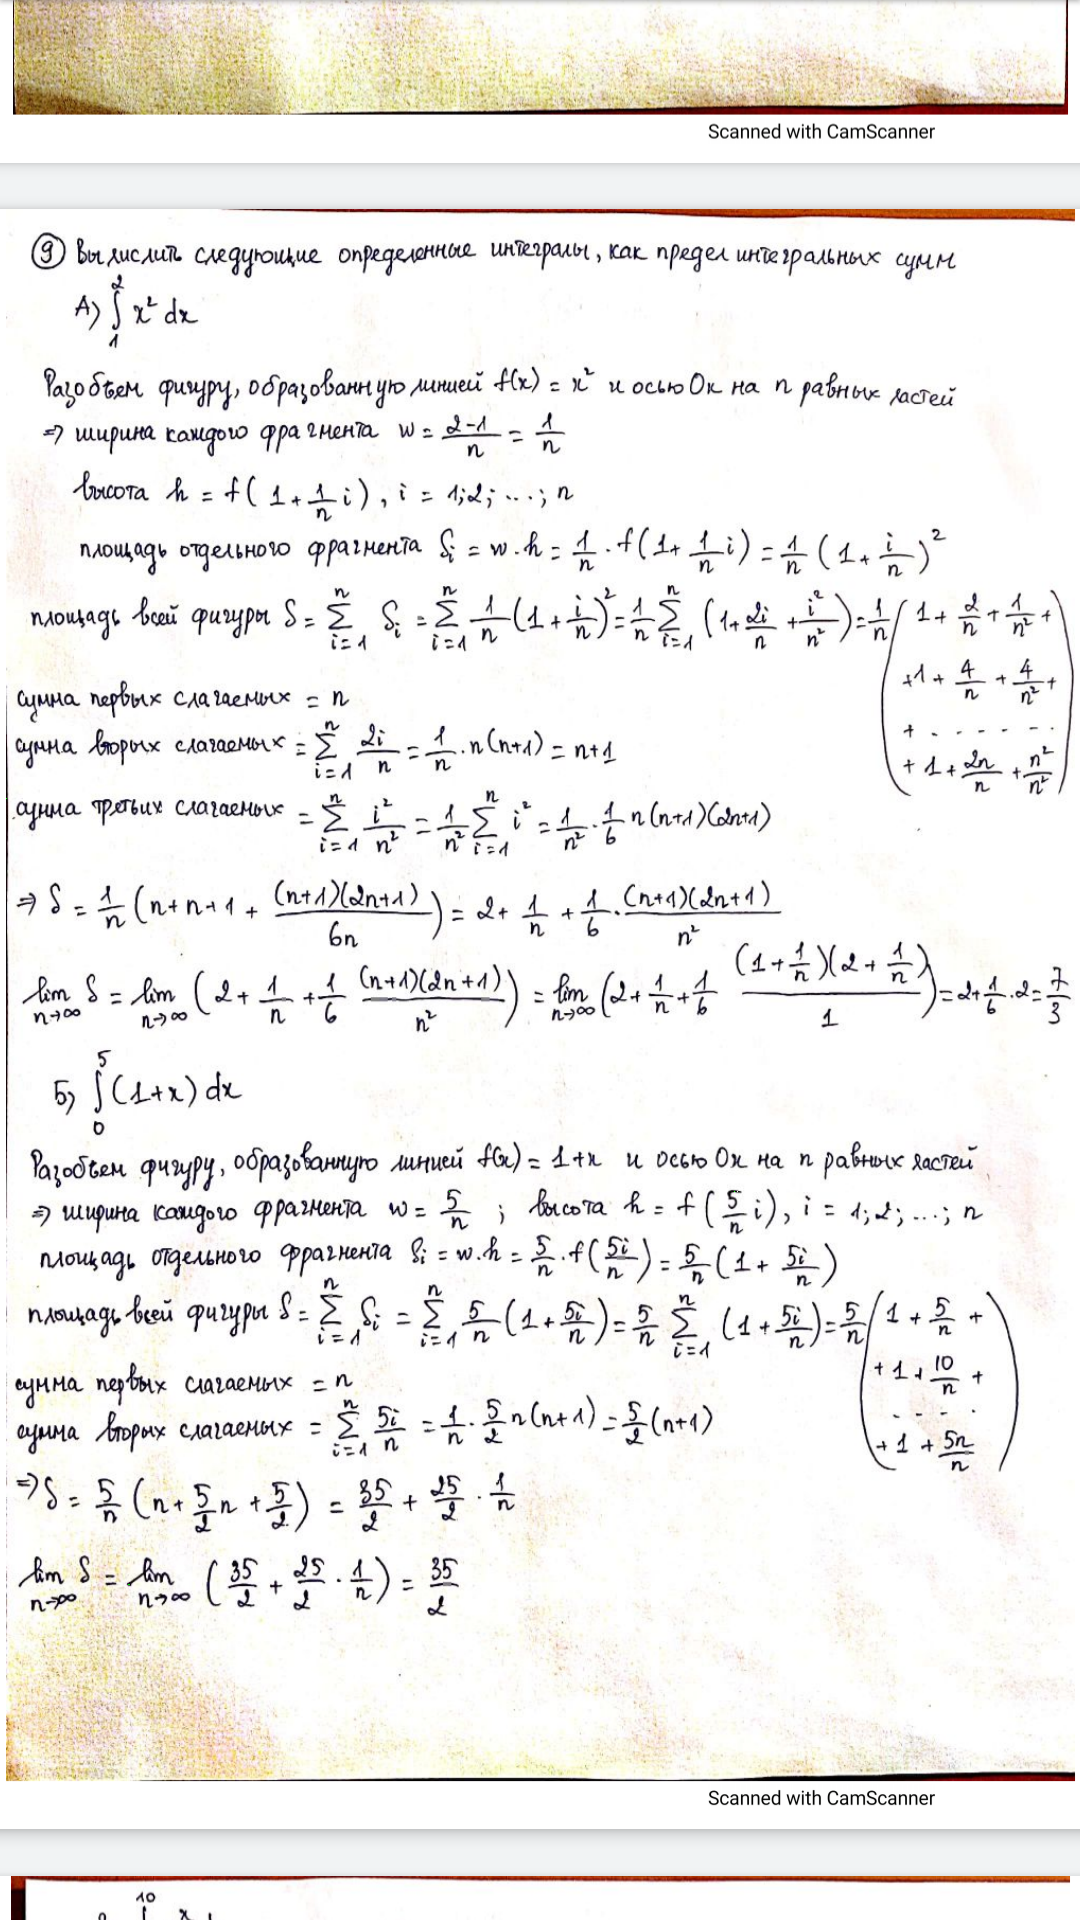 Scanned with CamScanner
⑨ Вычислить следующие определенные интегралы, как предел интегральных сумм
А) ∫₁² x² dx
Разобьем фигуру, образованную линией f(x) = x² и осью Ox на n равных частей
⇒ ширина каждого фрагмента w = (2-1)/n = 1/n
высота h = f(1 + 1/n i), i = 1; 2; ...; n
площадь отдельного фрагмента Sᵢ = w.h = 1/n · f(1 + 1/n i) = 1/n (1 + i/n)²
площадь всей фигуры S = Σᵢ₌₁ⁿ Sᵢ = Σᵢ₌₁ⁿ 1/n (1 + i/n)² = 1/n Σᵢ₌₁ⁿ (1 + 2i/n + i²/n²) = 1/n (1 + 2/n + 1/n² +
+ 1 + 4/n + 4/n² +
+ . . . . . .
+ 1 + 2n/n + n²/n²)
сумма первых слагаемых = n
сумма вторых слагаемых = Σᵢ₌₁ⁿ 2i/n = 1/n · n(n+1) = n+1
сумма третьих слагаемых = Σᵢ₌₁ⁿ i²/n² = 1/n² Σᵢ₌₁ⁿ i² = 1/n² · 1/6 n(n+1)(2n+1)
⇒ S = 1/n (n + n + 1 + (n+1)(2n+1)/6n) = 2 + 1/n + 1/6 · (n+1)(2n+1)/n²
lim n→∞ S = lim n→∞ (2 + 1/n + 1/6 (n+1)(2n+1)/n²) = lim n→∞ (2 + 1/n + 1/6 (1 + 1/n)(2 + 1/n)/1) = 2 + 1/6 · 2 = 7/3
Б) ∫₀⁵ (1+x) dx
Разобьем фигуру, образованную линией f(x) = 1+x и осью Ox на n равных частей
⇒ ширина каждого фрагмента w = 5/n ; высота h = f(5/n i), i = 1; 2; ...; n
площадь отдельного фрагмента Sᵢ = w.h = 5/n · f(5i/n) = 5/n (1 + 5i/n)
площадь всей фигуры S = Σᵢ₌₁ⁿ Sᵢ = Σᵢ₌₁ⁿ 5/n (1 + 5i/n) = 5/n Σᵢ₌₁ⁿ (1 + 5i/n) = 5/n (1 + 5/n +
+ 1 + 10/n +
. . . .
+ 1 + 5n/n)
сумма первых слагаемых = n
сумма вторых слагаемых = Σᵢ₌₁ⁿ 5i/n = 1/n · 5/2 n(n+1) = 5/2 (n+1)
⇒ S = 5/n (n + 5/2 n + 5/2) = 35/2 + 25/2 · 1/n
lim n→∞ S = lim n→∞ (35/2 + 25/2 · 1/n) = 35/2
Scanned with CamScanner
10